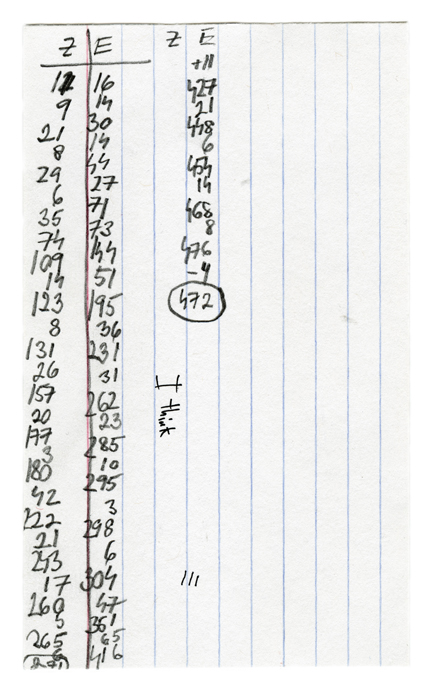 Z E
12
9
21
8
29
6
35
74
109
14
123
8
131
26
157
20
177
3
180
42
222
21
243
17
260
5
265
16
14
30
14
44
27
71
73
144
51
195
36
231
31
262
23
285
10
295
3
298
6
304
47
351
65
416
Z E
+11
427
21
448
6
454
14
468
8
476
-4
472
I think